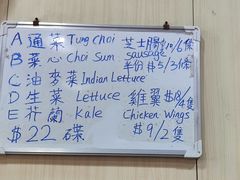 A 通菜 Tung Choi 芝士腸 $10/6條
B 菜心 Choi Sum sausage 半份 $5/3條
C 油麥菜 Indian Lettuce
D 生菜 Lettuce 雞翼 $18/4隻
E 芥蘭 Kale Chicken Wings
$22 碟 $9/2隻